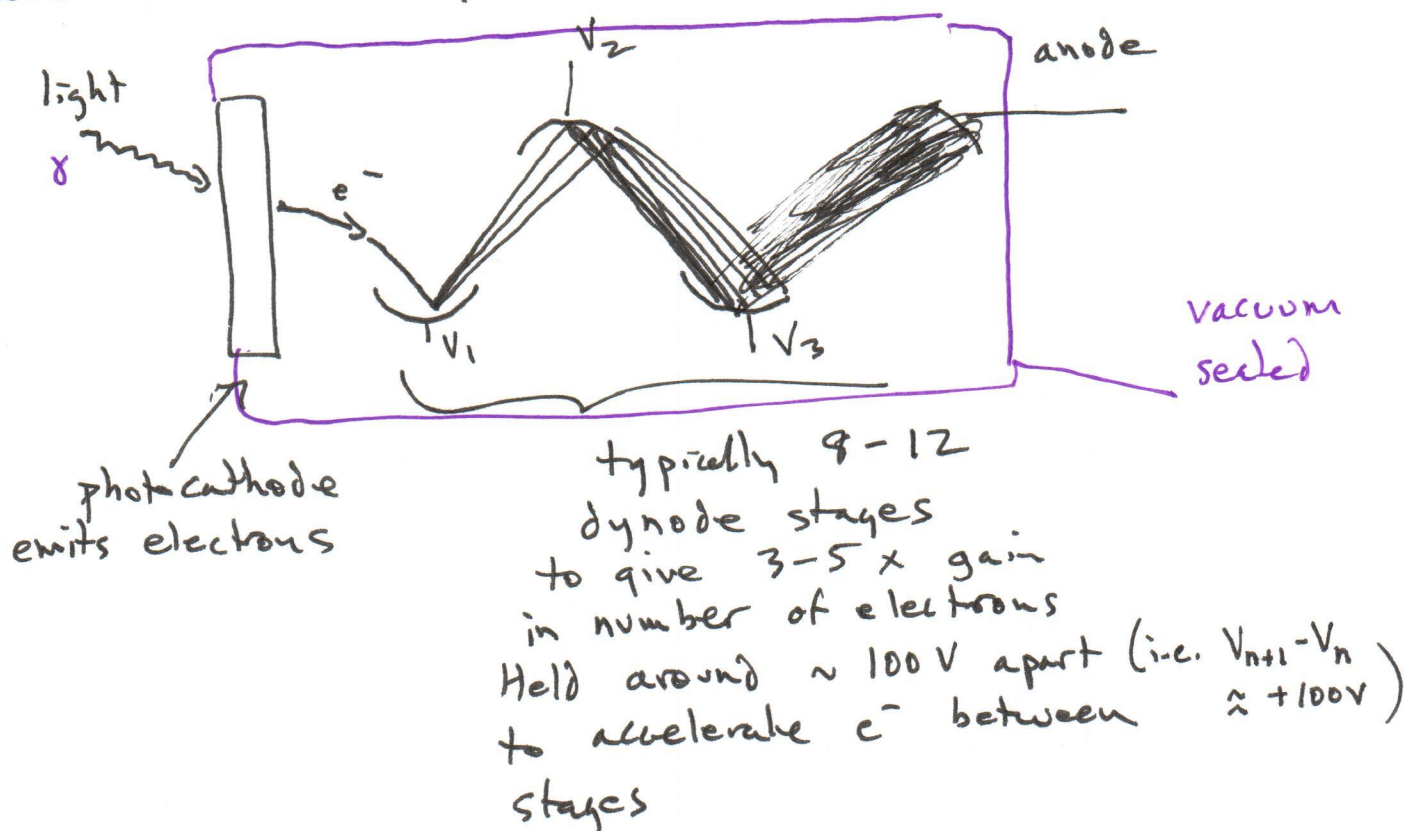 V₂
anode
light
γ
e⁻
V₁
V₃
vacuum
sealed
photocathode
emits electrons
typically 8-12
dynode stages
to give 3-5 x gain
in number of electrons
Held around ~ 100 V apart (i.e. Vₙ₊₁-Vₙ
≈ +100V)
to accelerate e⁻ between
stages